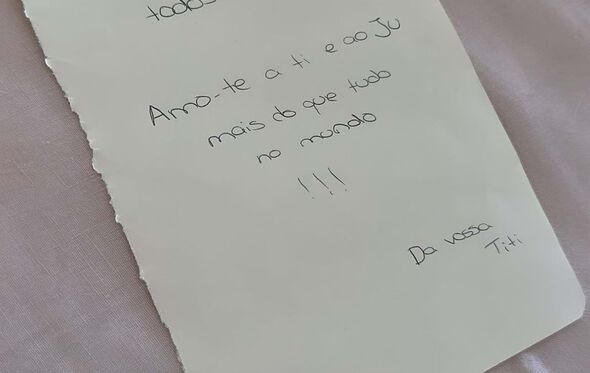 todos
Amo-te a ti e ao Ju
mais do que tudo
no mundo
!!!
Da vossa
Titi